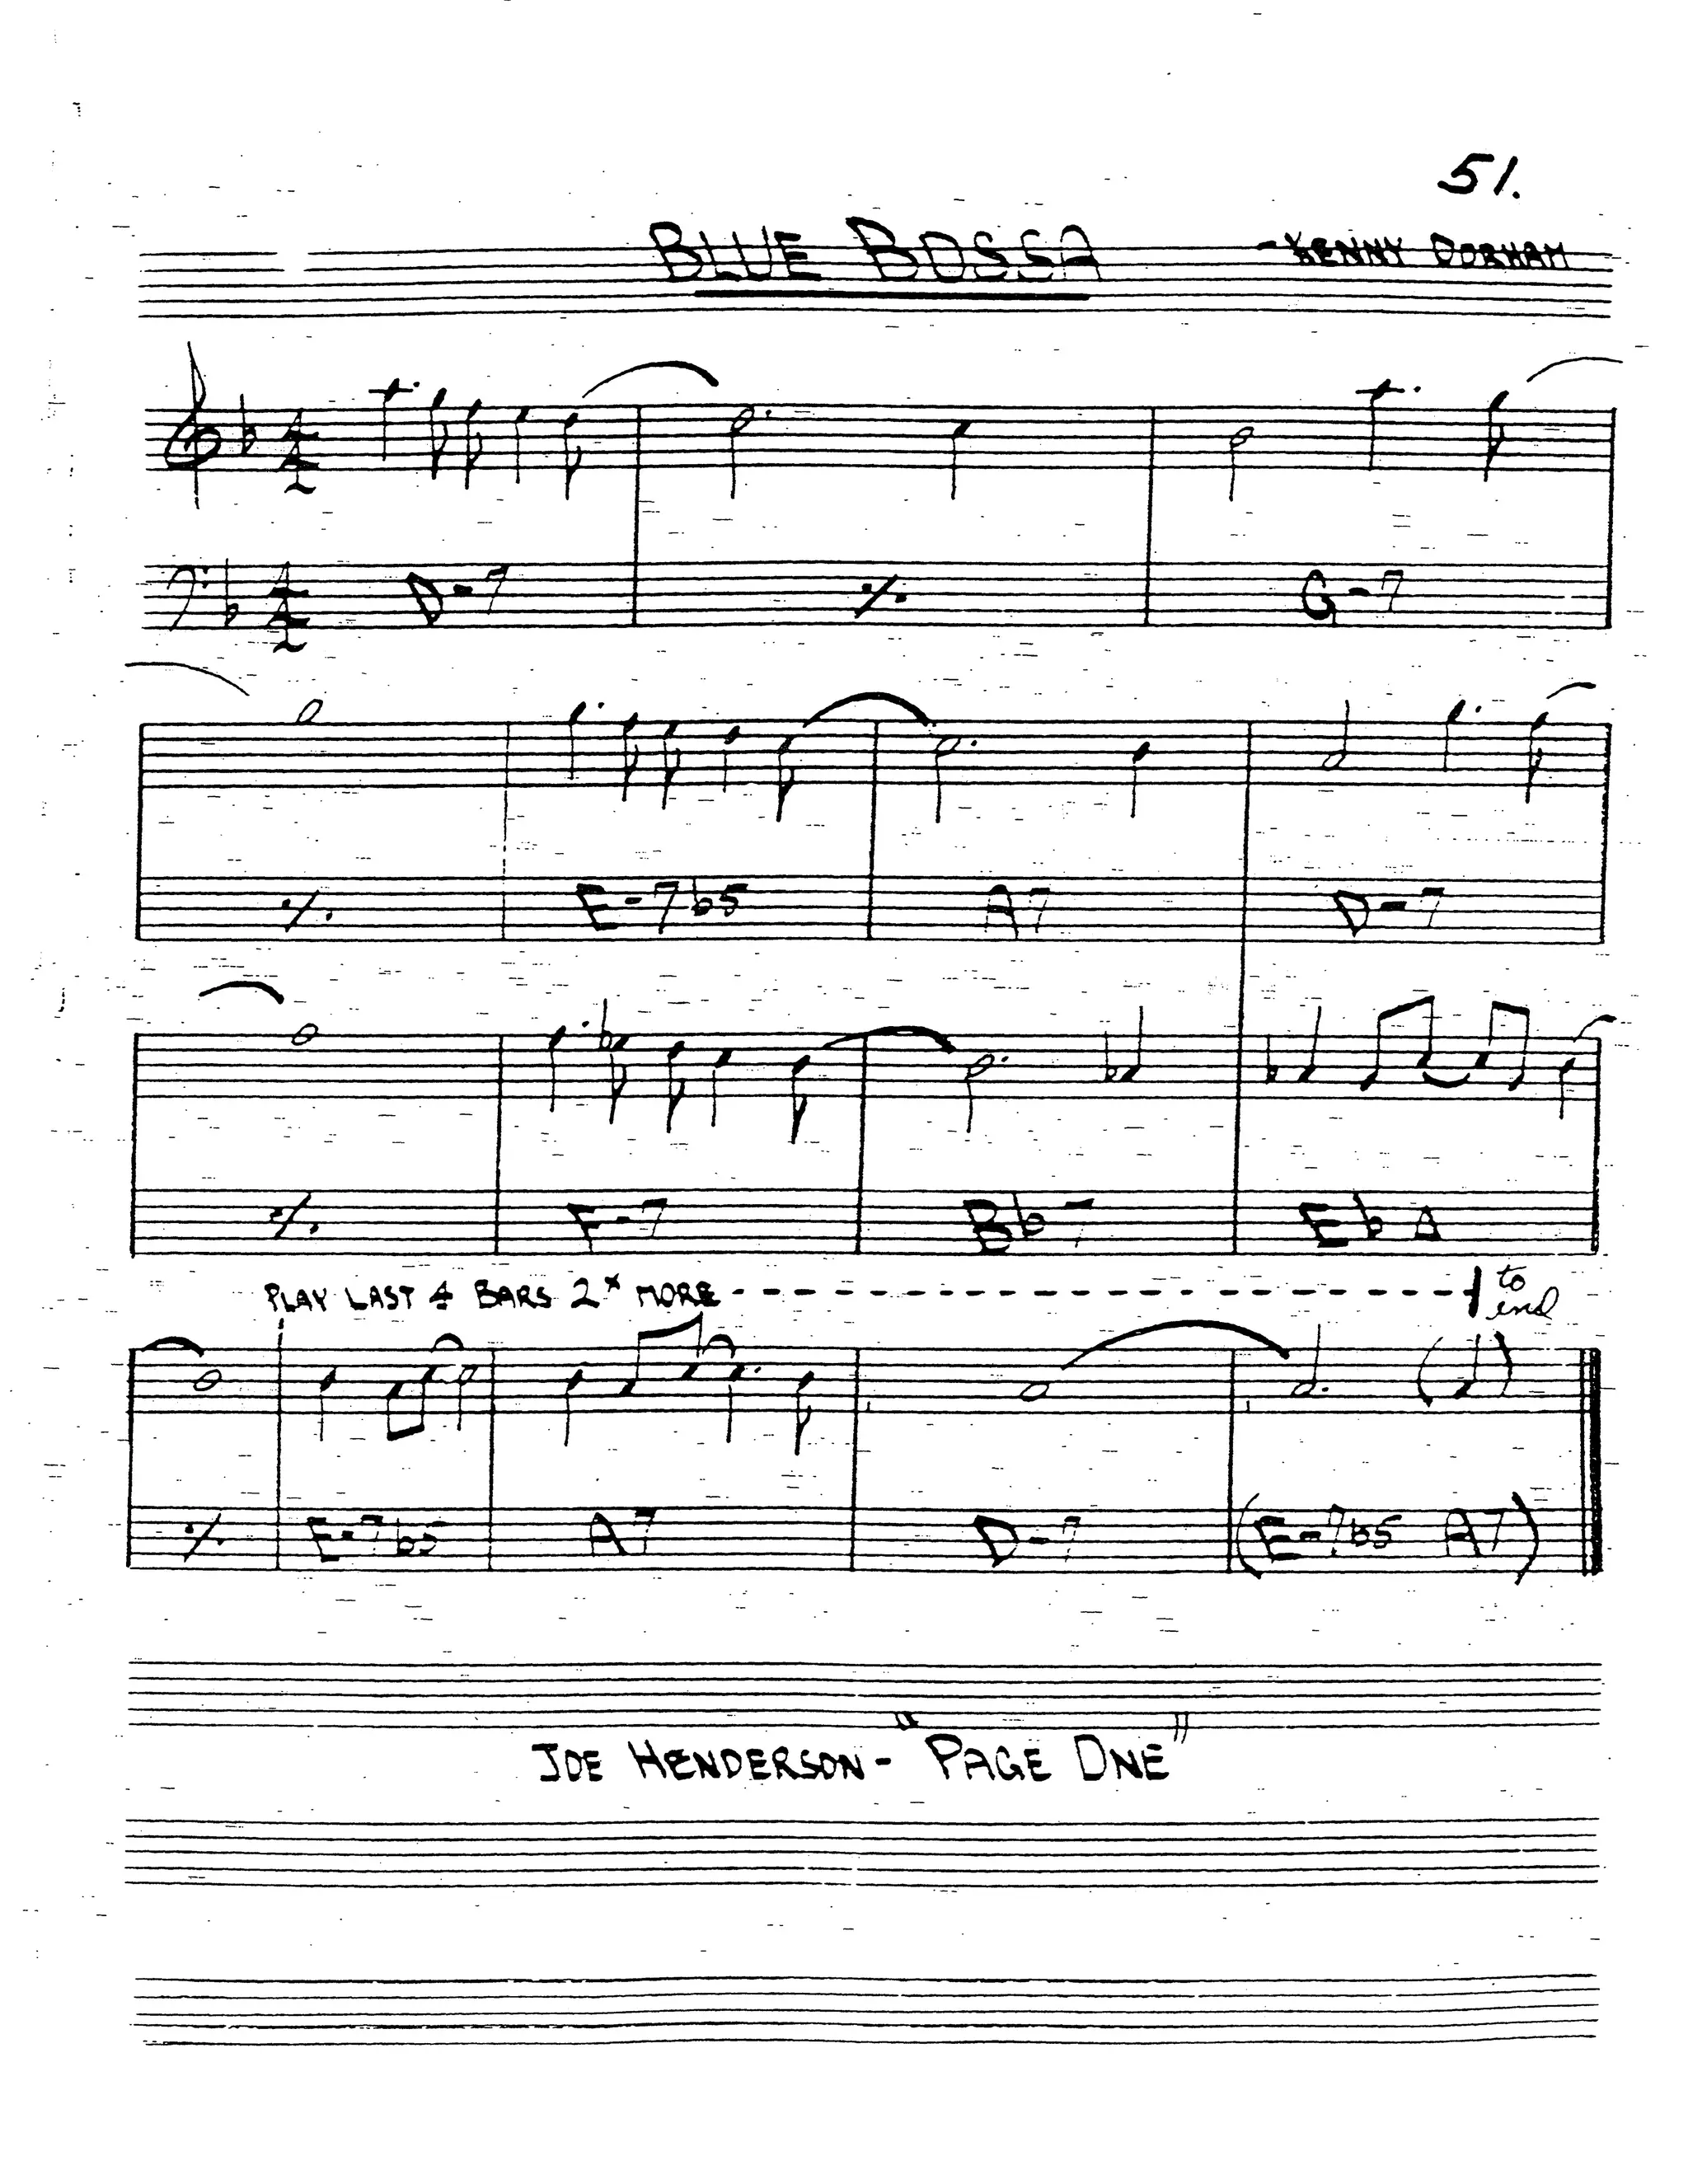 51.
BLUE BOSSA
- KENNY DORHAM
4 4
4 4 D-7 ٪ G-7
٪ E-7b5 A7 D-7
٪ F-7 Bb7 Eb Δ
PLAY LAST 4 BARS 2x MORE to end
٪ E-7b5 A7 D-7 (E-7b5 A7)
JOE HENDERSON - "PAGE ONE"